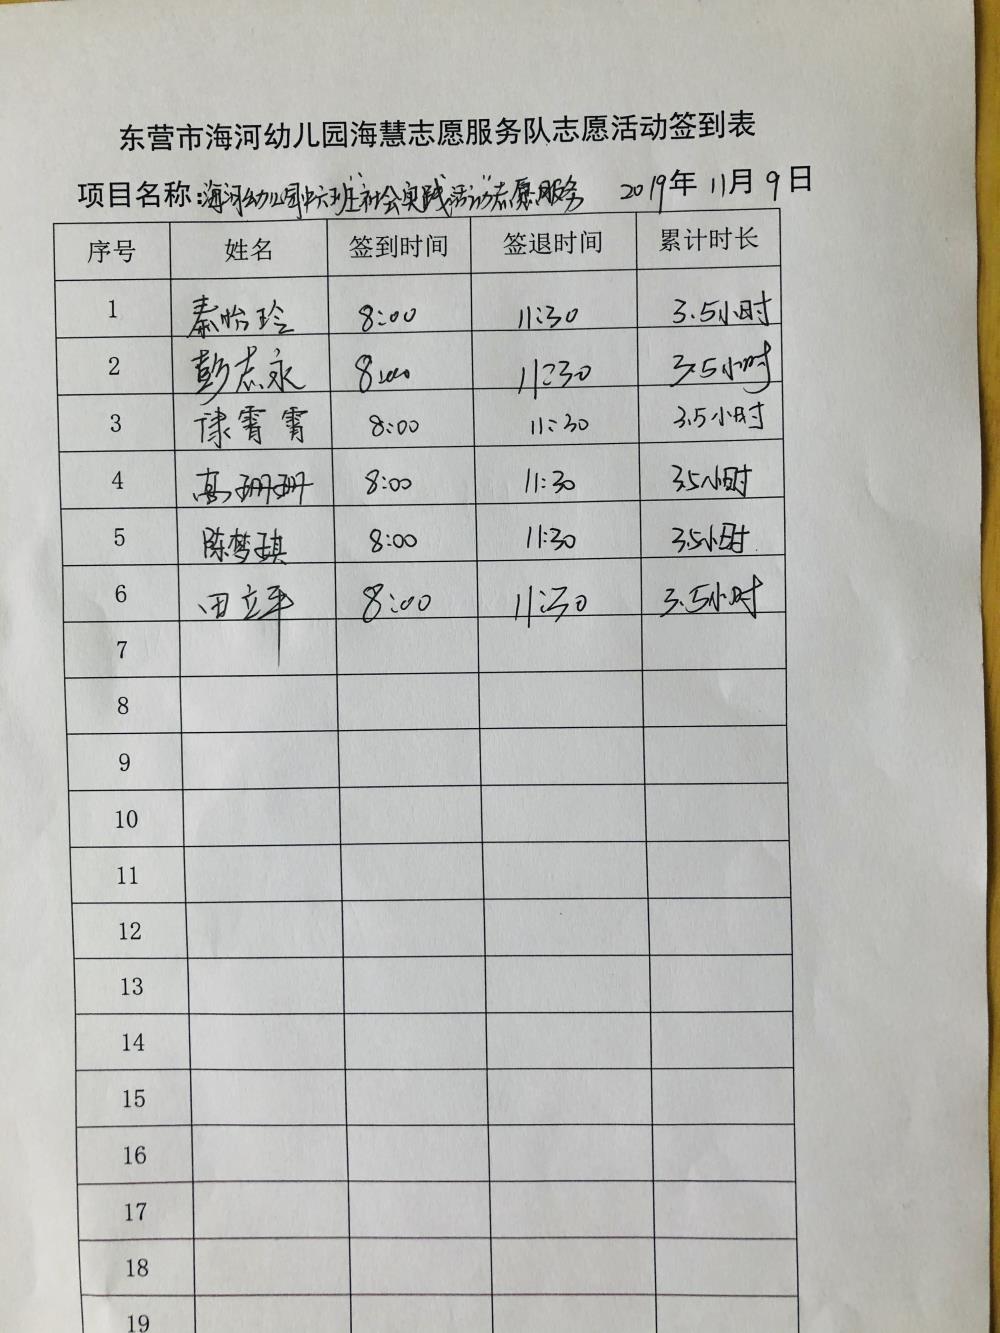 东营市海河幼儿园海慧志愿服务队志愿活动签到表
项目名称:海河幼儿园中六班"社会实践活动"志愿服务 2019年11月9日
序号 姓名 签到时间 签退时间 累计时长
1 秦怡玲 8:00 11:30 3.5小时
2 彭志永 8:00 11:30 3.5小时
3 霄霄 8:00 11:30 3.5小时
4 高珊珊 8:00 11:30 3.5小时
5 陈梦琪 8:00 11:30 3.5小时
6 田立平 8:00 11:30 3.5小时
7
8
9
10
11
12
13
14
15
16
17
18
19